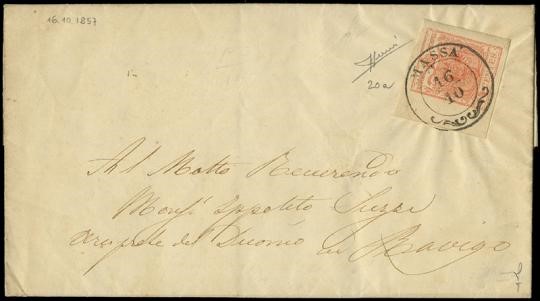 16.10.1857
MASSA
16
10
20a
Al Molto Reverendo
Monsi Ippolito
Arciprete del Duomo
in Rovigo